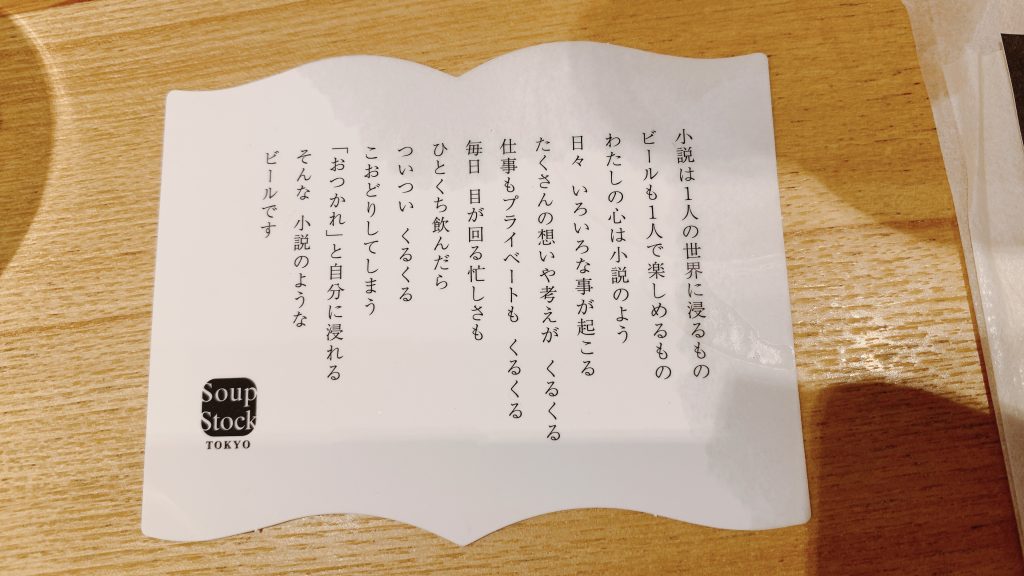 小説は1人の世界に浸るもの
ビールも1人で楽しめるもの
わたしの心は小説のよう
日々 いろいろな事が起こる
たくさんの想いや考えが くるくる
仕事もプライベートも くるくる
毎日 目が回る忙しさも
ひとくち飲んだら
ついつい くるくる
こおどりしてしまう
「おつかれ」と自分に浸れる
そんな 小説のような
ビールです
Soup
Stock
TOKYO